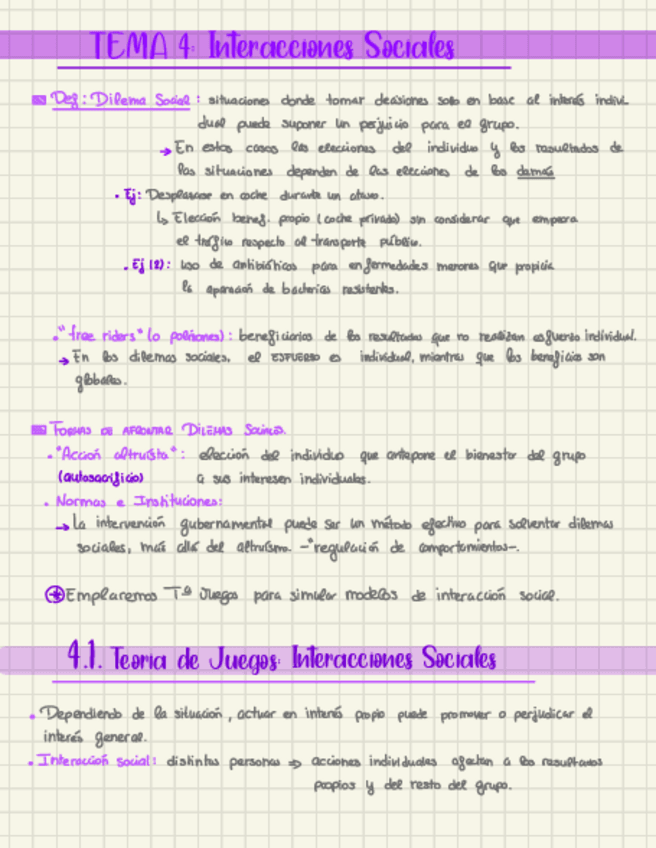 TEMA 4: Interacciones Sociales
Def: Dilema Social: situaciones donde tomar decisiones solo en base al interés indivi-
dual puede suponer un perjuicio para el grupo.
→ En estos casos las elecciones del individuo y los resultados de
las situaciones dependen de las elecciones de los demás
• Ej: Desplazarse en coche durante un atasco.
↳ Elección benef. propio (coche privado) sin considerar que empeora
el tráfico respecto al transporte público.
• Ej (2): uso de antibióticos para enfermedades menores que propicia
la aparición de bacterias resistentes.
• "free riders" (o polizones): beneficiarios de los resultados que no realizan esfuerzo individual.
→ En los dilemas sociales, el ESFUERZO es individual, mientras que los beneficios son
globales.
FORMAS DE AFRONTAR DILEMAS SOCIALES.
• "Acción altruista": elección del individuo que antepone el bienestar del grupo
(autosacrificio) a sus intereses individuales.
• Normas e Instituciones:
→ La intervención gubernamental puede ser un método efectivo para solventar dilemas
sociales, más allá del altruismo. -"regulación de comportamientos-.
→ Emplearemos Tª Juegos para simular modelos de interacción social.
4.1. Teoría de Juegos: Interacciones Sociales
• Dependiendo de la situación, actuar en interés propio puede promover o perjudicar el
interés general.
• Interacción social: distintas personas ⇒ acciones individuales afectan a los resultados
propios y del resto del grupo.